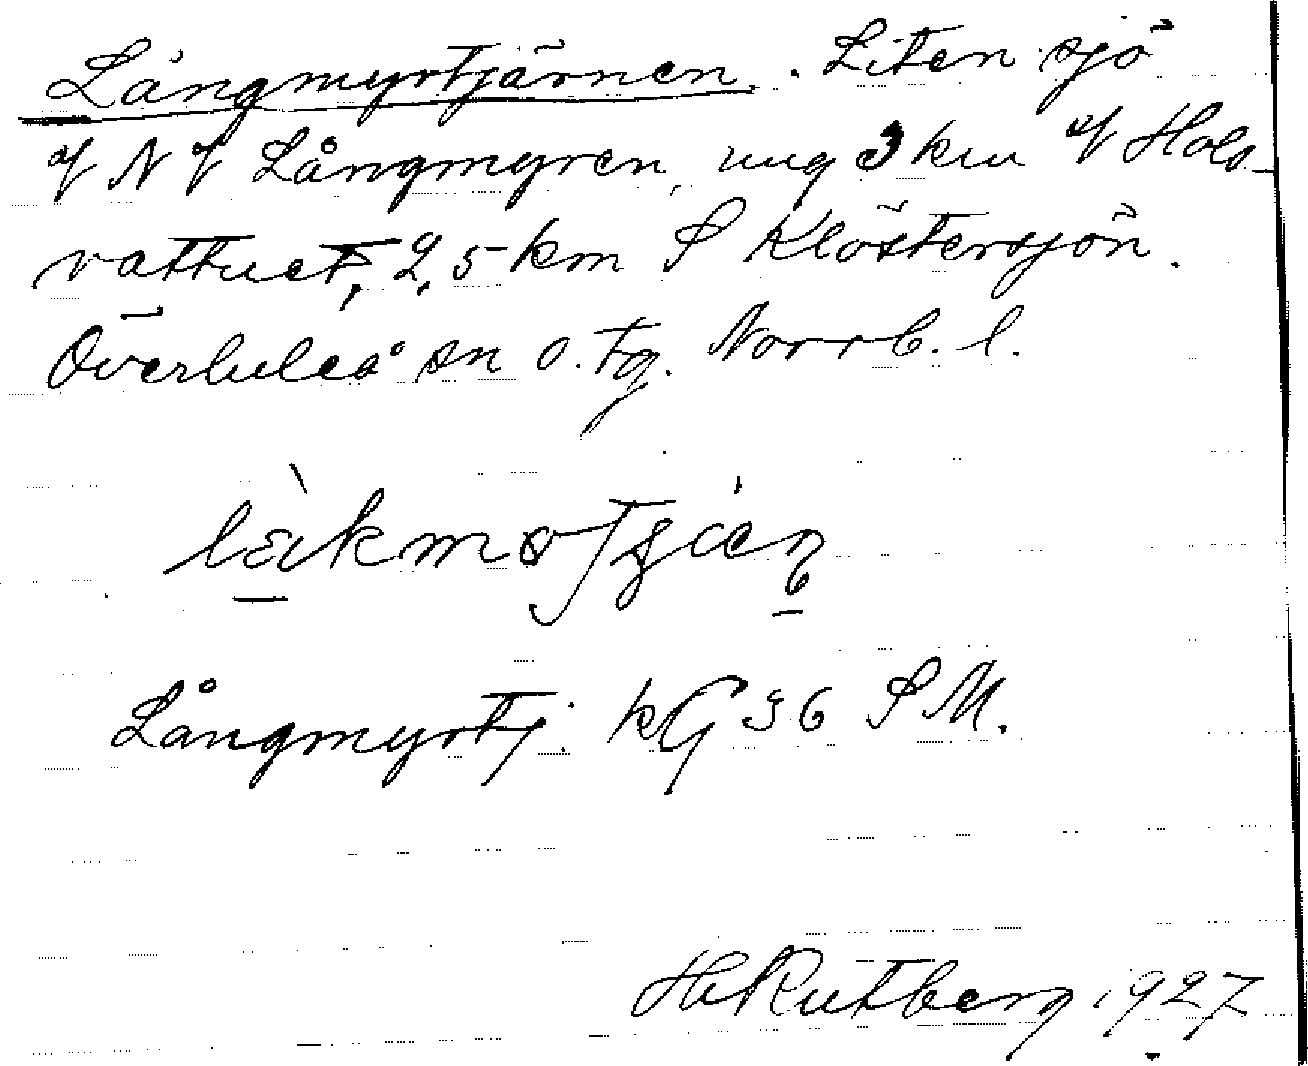 Långmyrtjärnen. Liten sjö
N Långmyren, ung 3 km Hals-
vattnet, 2,5 km S Klöstersjön.
Överluleå sn o. tg. Norrb. l.
Långmyrtj. kG 36 SM.
H Rutberg 1927